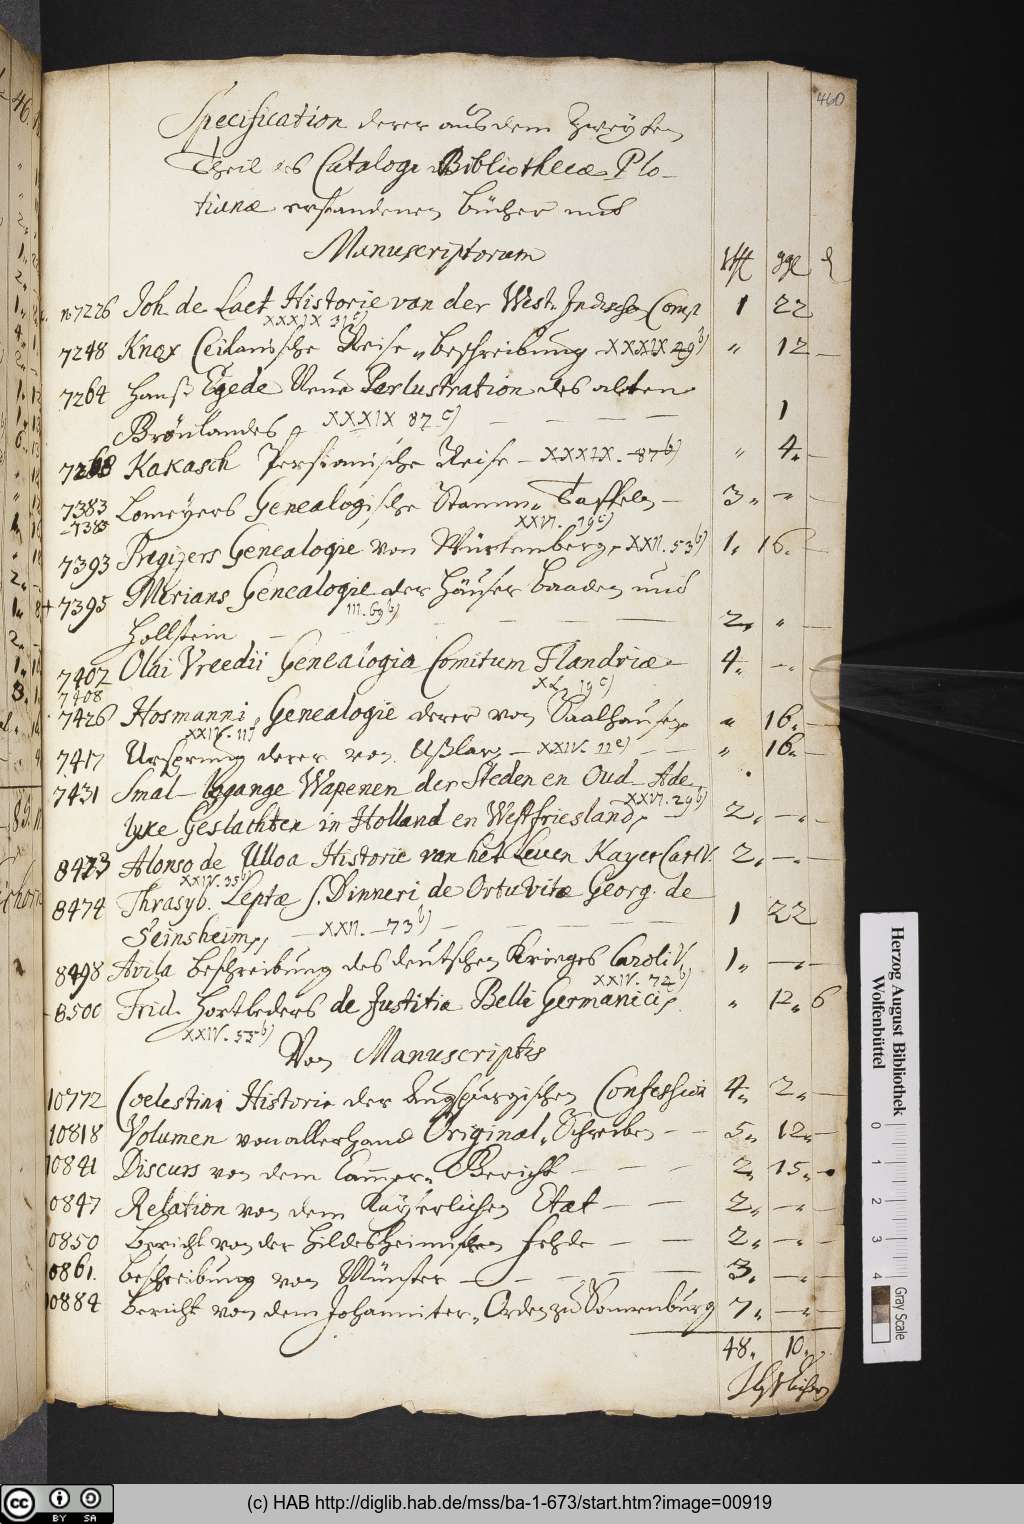 460
Specification derer aus dem Zweyten
Theil des Catalogi Bibliothecæ Plo-
tiianæ erstandenen Bücher und
Manuscriptorum
Rtl ggl d
no 7226 Joh. de Laet Historie van der West. Indische Comp 1 22
XXXIX 31 c)
7248 Knox Ceilanische Reise „ beschreibung XXXIX 29 b) „ 12 —
7264 Hanß Egede Neue Perlustration des alten
Grönlandes XXXIX 87 c) — — — 1
7268 Kakasch Persianische Reise — XXXIX. 87 b) „ 4. —
7383 Lomeyers Genealogische Stamm „ Taffeln — 3 „ — „ —
-7385
XXVI. 19 c)
7393 Pregizers Genealogie von Würtemberg, XXII. 53 b) 1. 16. —
7395 Merians Genealogie der Häuser Baaden und
III. 69 b)
Hollstein — — — — 2 „ „ —
7407 Olai Vreedii Genealogia Comitum Flandriæ 4. — .
7408
XL, 19 c)
7426 Hosmanni, Genealogie derer von Saalhausen „ 16. —
XXIV. 11
7417 Ursprung derer von Ußlar, — XXIV. 11 e) — — „ 16. —
7431 Smal — Wapenen der Steden en Oud - Ade„
XXVI. 29 b)
lyke Geslachten in Holland en Westfriesland, 2. — . —
8473 Alonso de Ulloa Historie van het Leven Kayer Carl V. 2. — . —
XXIV. 35 b)
8474 Thrasyb. Leptæ s. Dinneri de Ortu Vita Georg. de
Seinsheim, — XXII. 73 b) — — — 1 22
8498 Avila beschreibung des deutschen Krieges Caroli V. 1. — . —
XXIV. 72 b)
8500 Frid. Hortleders de Justitia Belli Germanici, „ 12 „ 6
XXIV. 55 b)
Von Manuscriptis
10772 Coelestini Historie der Augspurgischen Confession 4 „ 2 „ —
10818 Volumen von allerhand Original „ Schreiben — — 5 „ 12 „ —
10841 Discurs von dem Cammer „ Gericht — — — 2 „ 15 „ —
0847 Relation von dem Kayserlichen Etat — — 2 „ — „ —
0850 Bericht von der Hildesheimischen Fehde — — 2 „ — „ —
0861. beschreibung von Münster — — — — — 3 „ — „ —
10884 Bericht von dem Johanniter „ Orden zu Sonnenburg 7 „ — „
48 „ 10 „
Herzog August Bibliothek
Wolfenbüttel
0 1 2 3 4
Gray Scale
cc BY SA
(c) HAB http://diglib.hab.de/mss/ba-1-673/start.htm?image=00919